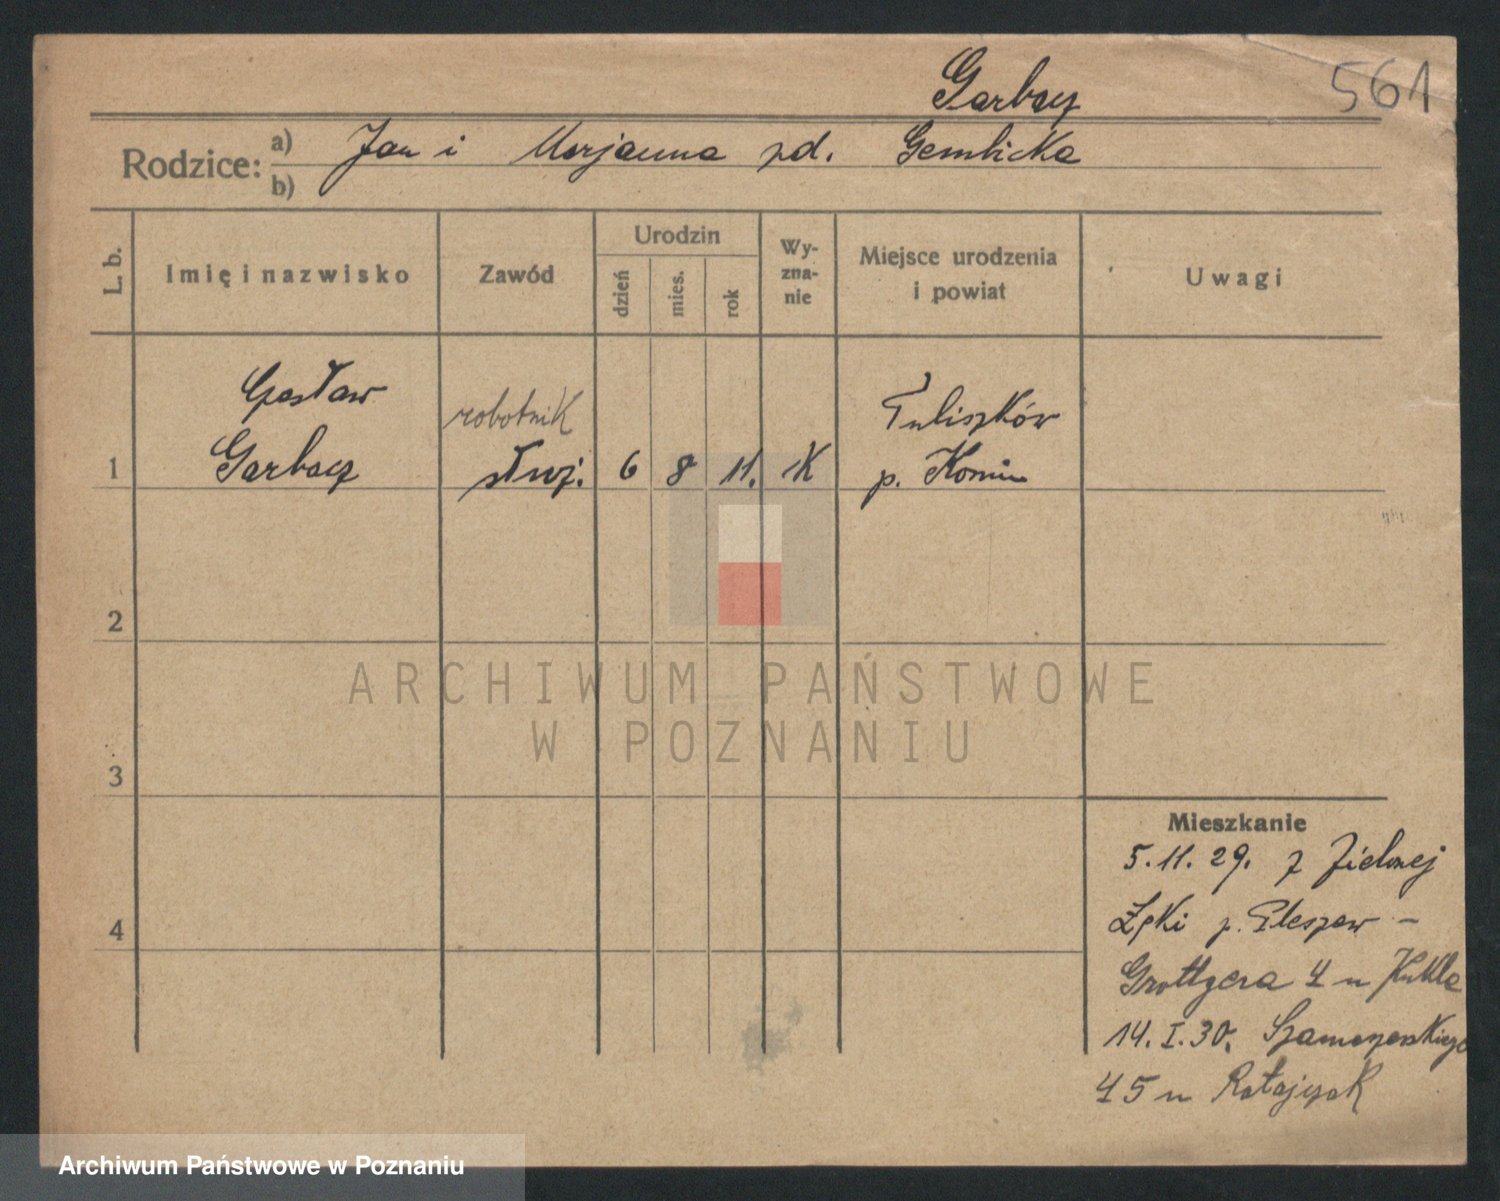 Garbacz
561
Rodzice:
a) Jan i Marjanna zd. Gemlicka
b)
L. b.
Imię i nazwisko
Zawód
Urodzin
dzień
mies.
rok
Wy-
zna-
nie
Miejsce urodzenia
i powiat
Uwagi
Czesław
robotnik
Tuliszków
1 Garbacz służ. 6 8 11. K p. Konin
2
3
4
Mieszkanie
5.11.29. z Zielonej
Łąki p. Pleszew –
Grottgera 4 u Kukla
14.I.30. Szamarzewskiego
45 u Ratajczak
ARCHIWUM PAŃSTWOWE
W POZNANIU
Archiwum Państwowe w Poznaniu